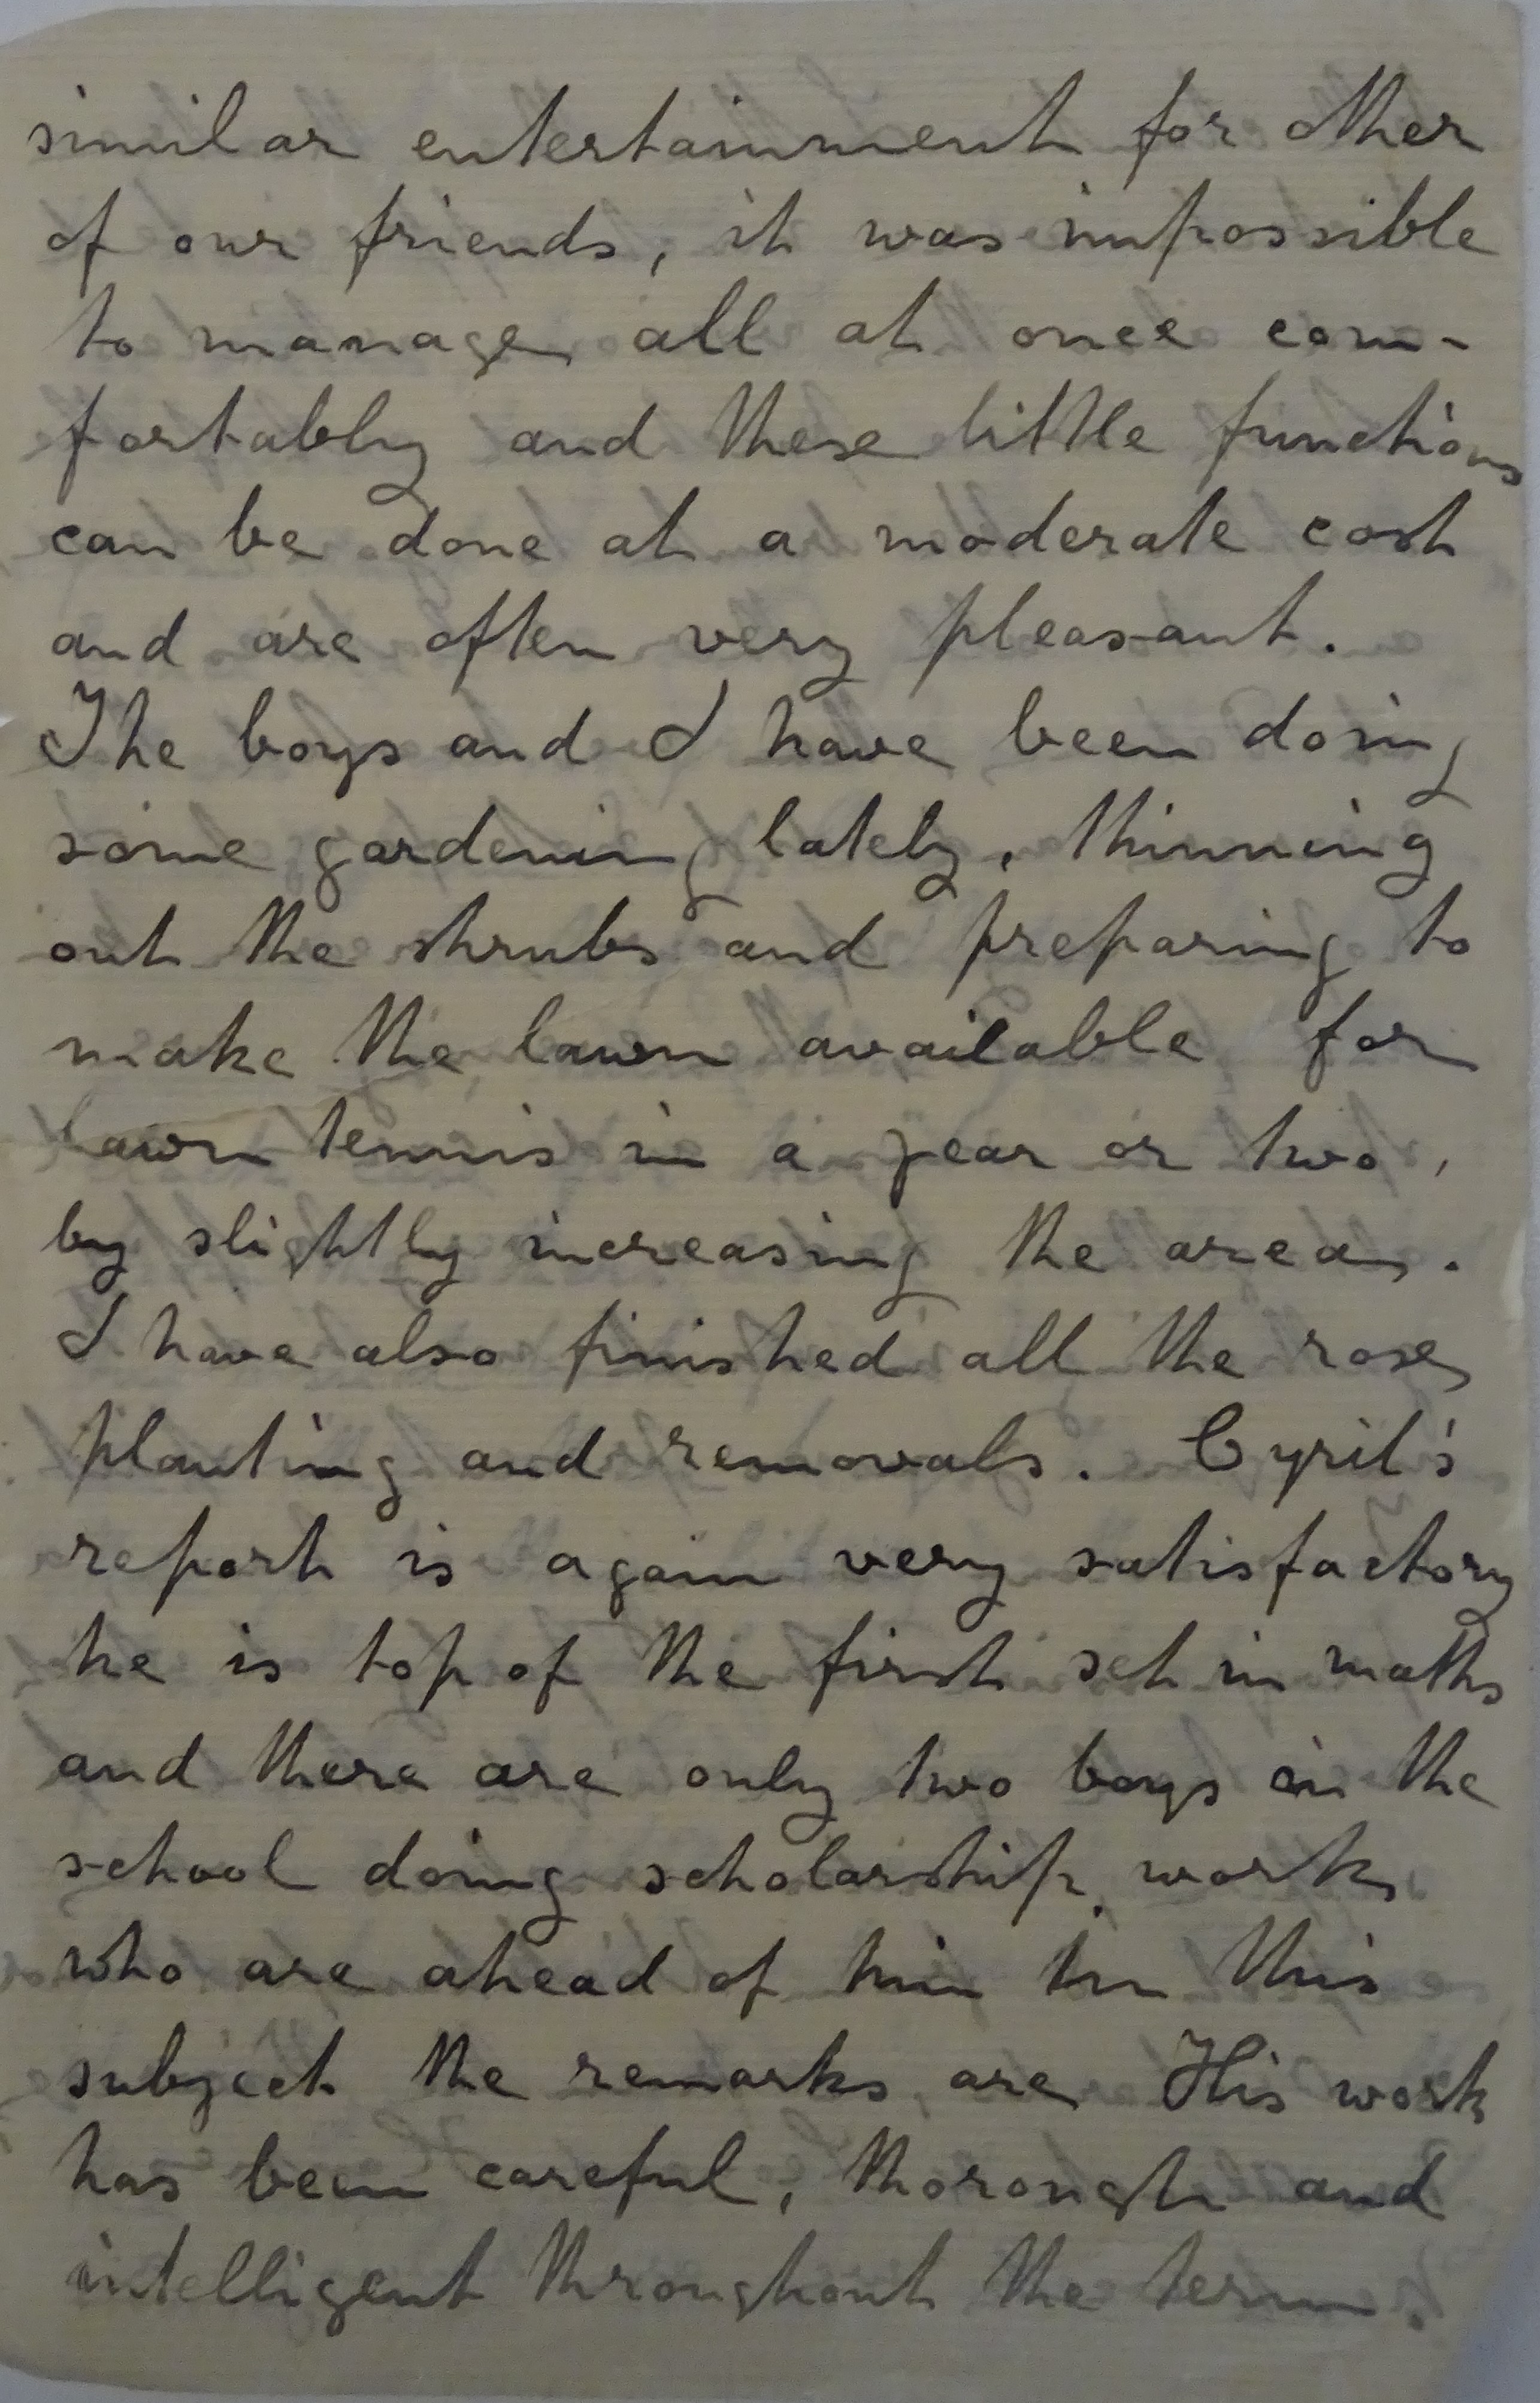 similar entertainment for other
of our friends, it was impossible
to manage all at once com-
fortably and these little functions
can be done at a moderate cost
and are often very pleasant.
The boys and I have been doing
some gardening lately, thinning
out the shrubs and preparing to
make the lawn available for
lawn tennis in a year or two,
by slightly increasing the area.
I have also finished all the rose
planting and removals. Cyril's
report is again very satisfactory
he is top of the first set in maths
and there are only two boys in the
school doing scholarship work
who are ahead of him In this
subject the remarks are His work
has been careful, thorough and
intelligent throughout the term.